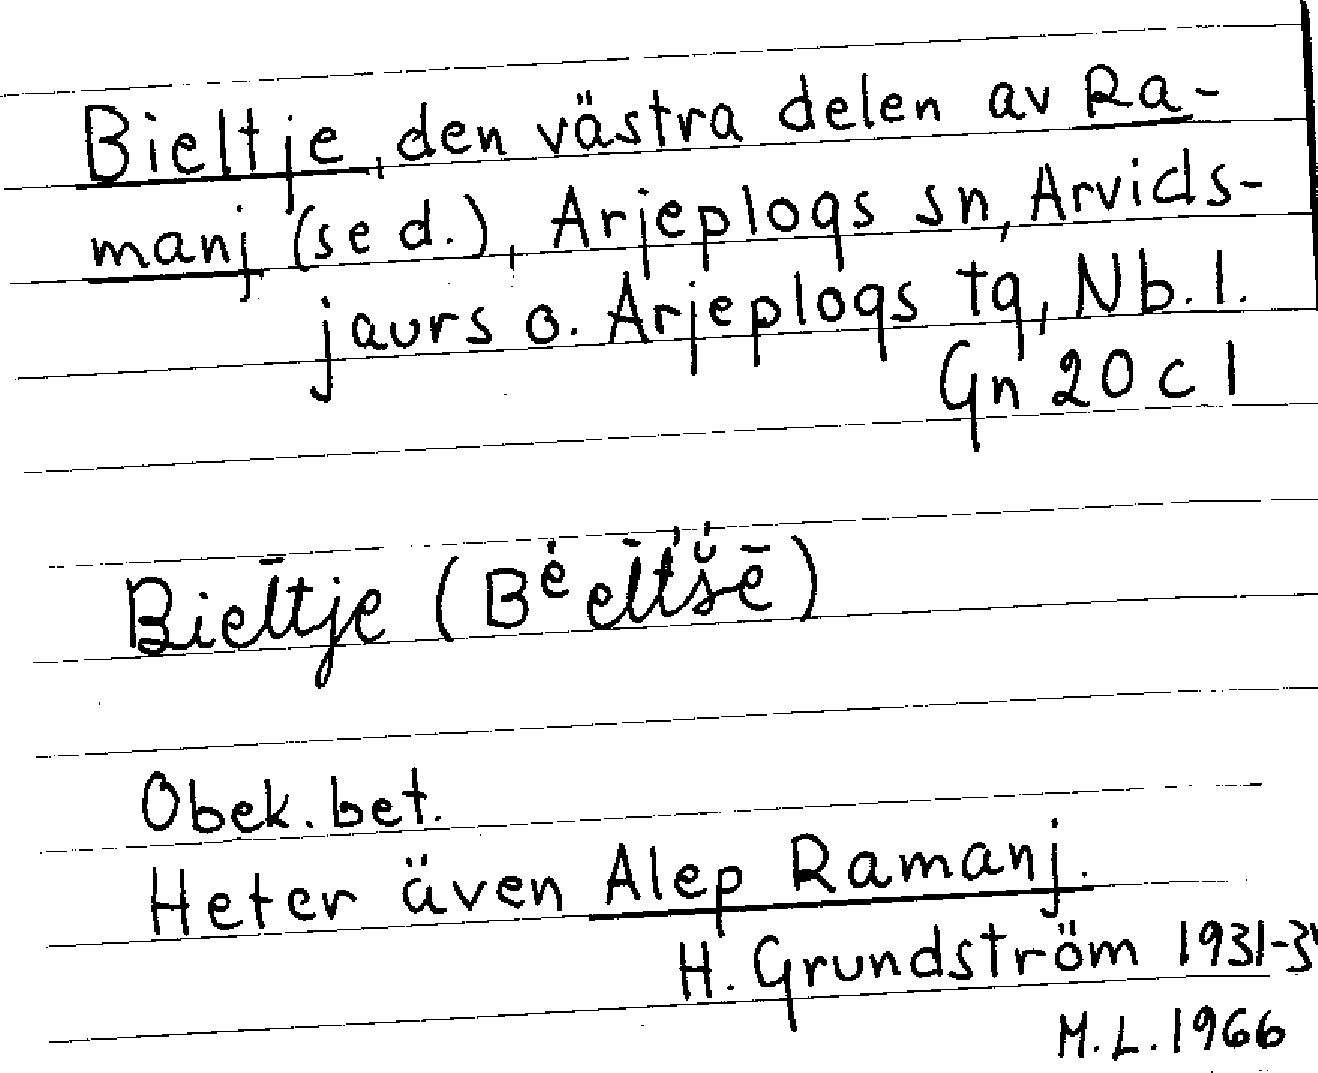 Bieltje, den västra delen av Ra-
manj (se d.), Arjeplogs sn, Arvids-
jaurs o. Arjeplogs tg, Nb. l.
Gn 20 c 1
Bieltje
Obek. bet.
Heter även Alep Ramanj.
H. Grundström 1931-3
M.L. 1966